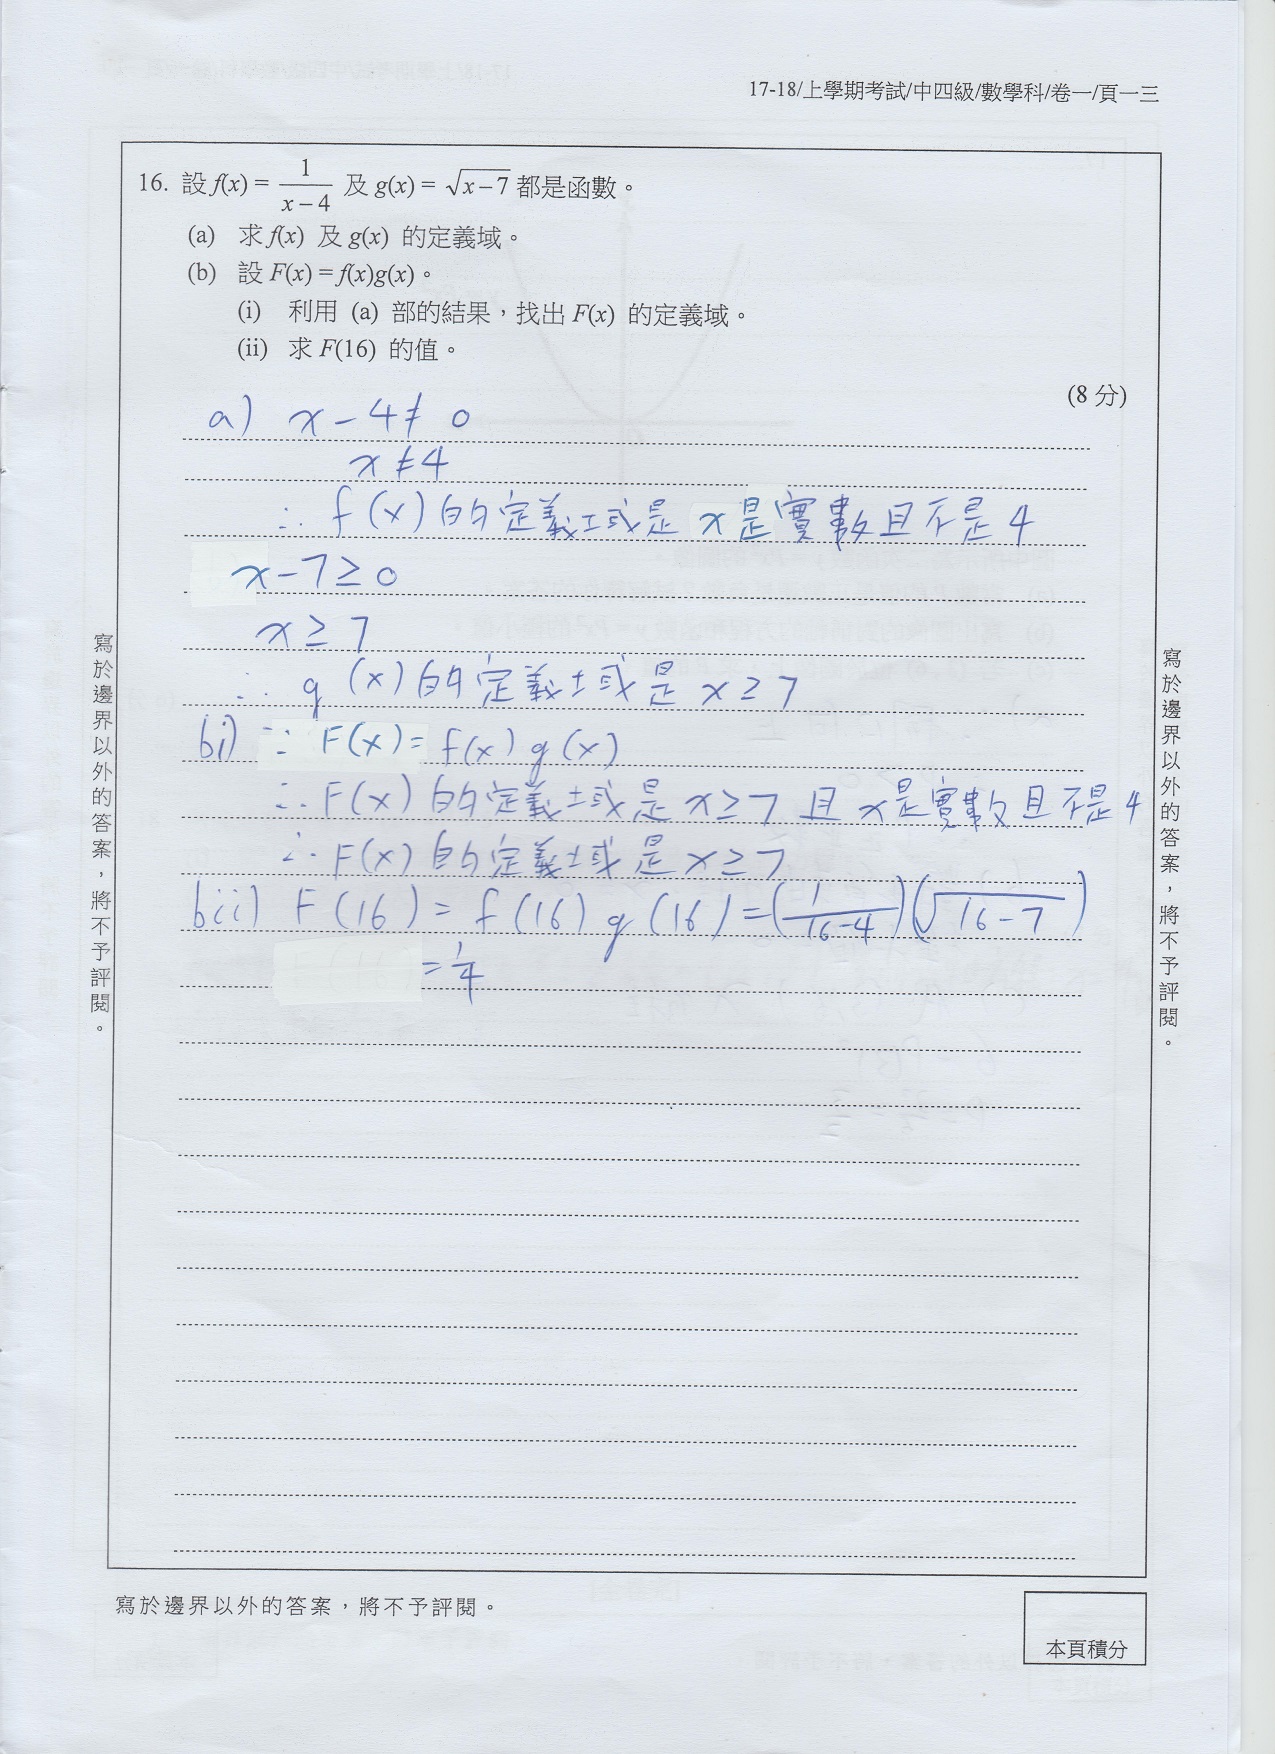 17-18/上學期考試/中四級/數學科/卷一/頁一三
16. 設 f(x) = 1/(x − 4) 及 g(x) = √(x − 7) 都是函數。
(a) 求 f(x) 及 g(x) 的定義域。
(b) 設 F(x) = f(x)g(x)。
(i) 利用 (a) 部的結果，找出 F(x) 的定義域。
(ii) 求 F(16) 的值。
(8 分)
a) x − 4 ≠ 0
x ≠ 4
∴ f(x) 的定義域是 x是實數且不是 4
x − 7 ≥ 0
x ≥ 7
∴ g(x) 的定義域是 x ≥ 7
bi) ∵ F(x) = f(x) g(x)
∴ F(x) 的定義域是 x ≥ 7 且 x是實數且不是 4
∴ F(x) 的定義域是 x ≥ 7
bii) F(16) = f(16) g(16) = (1/(16−4))(√(16−7))
= 1/4
寫於邊界以外的答案，將不予評閱。
寫於邊界以外的答案，將不予評閱。
寫於邊界以外的答案，將不予評閱。
本頁積分